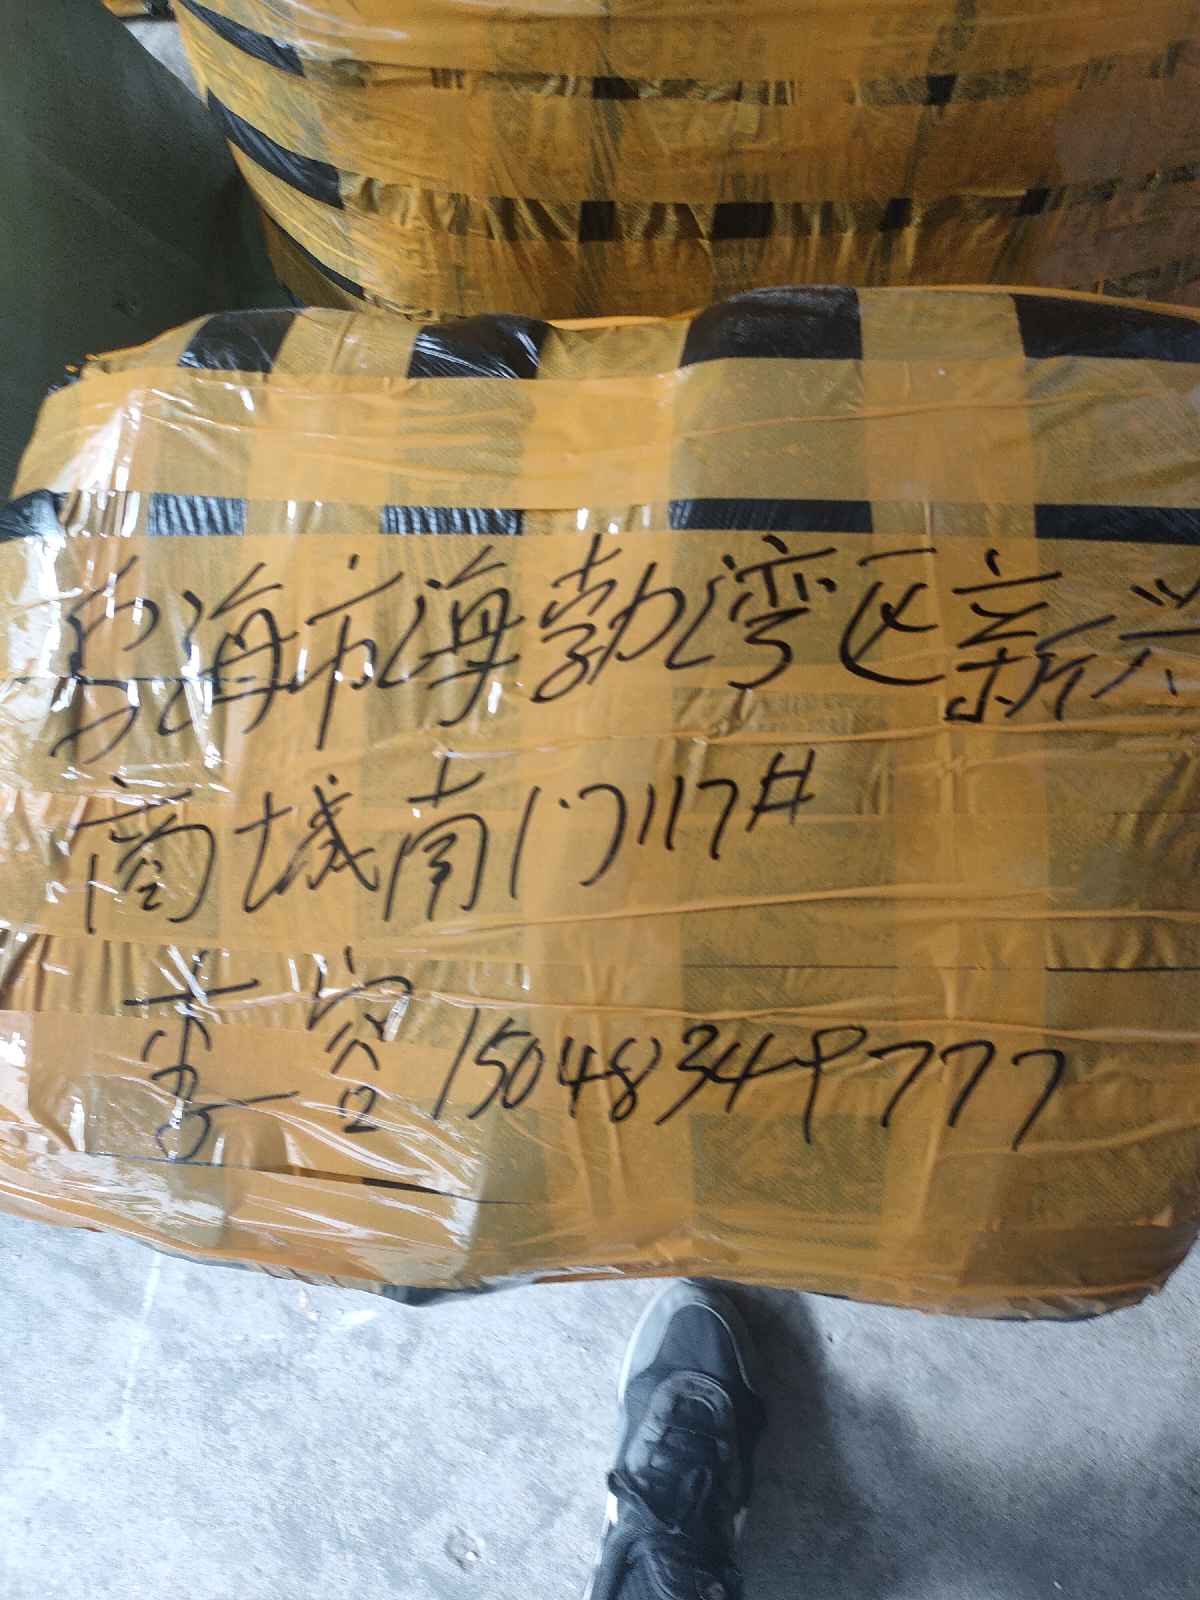 乌海市海勃湾区新兴
商城南门117#
李容15048349777